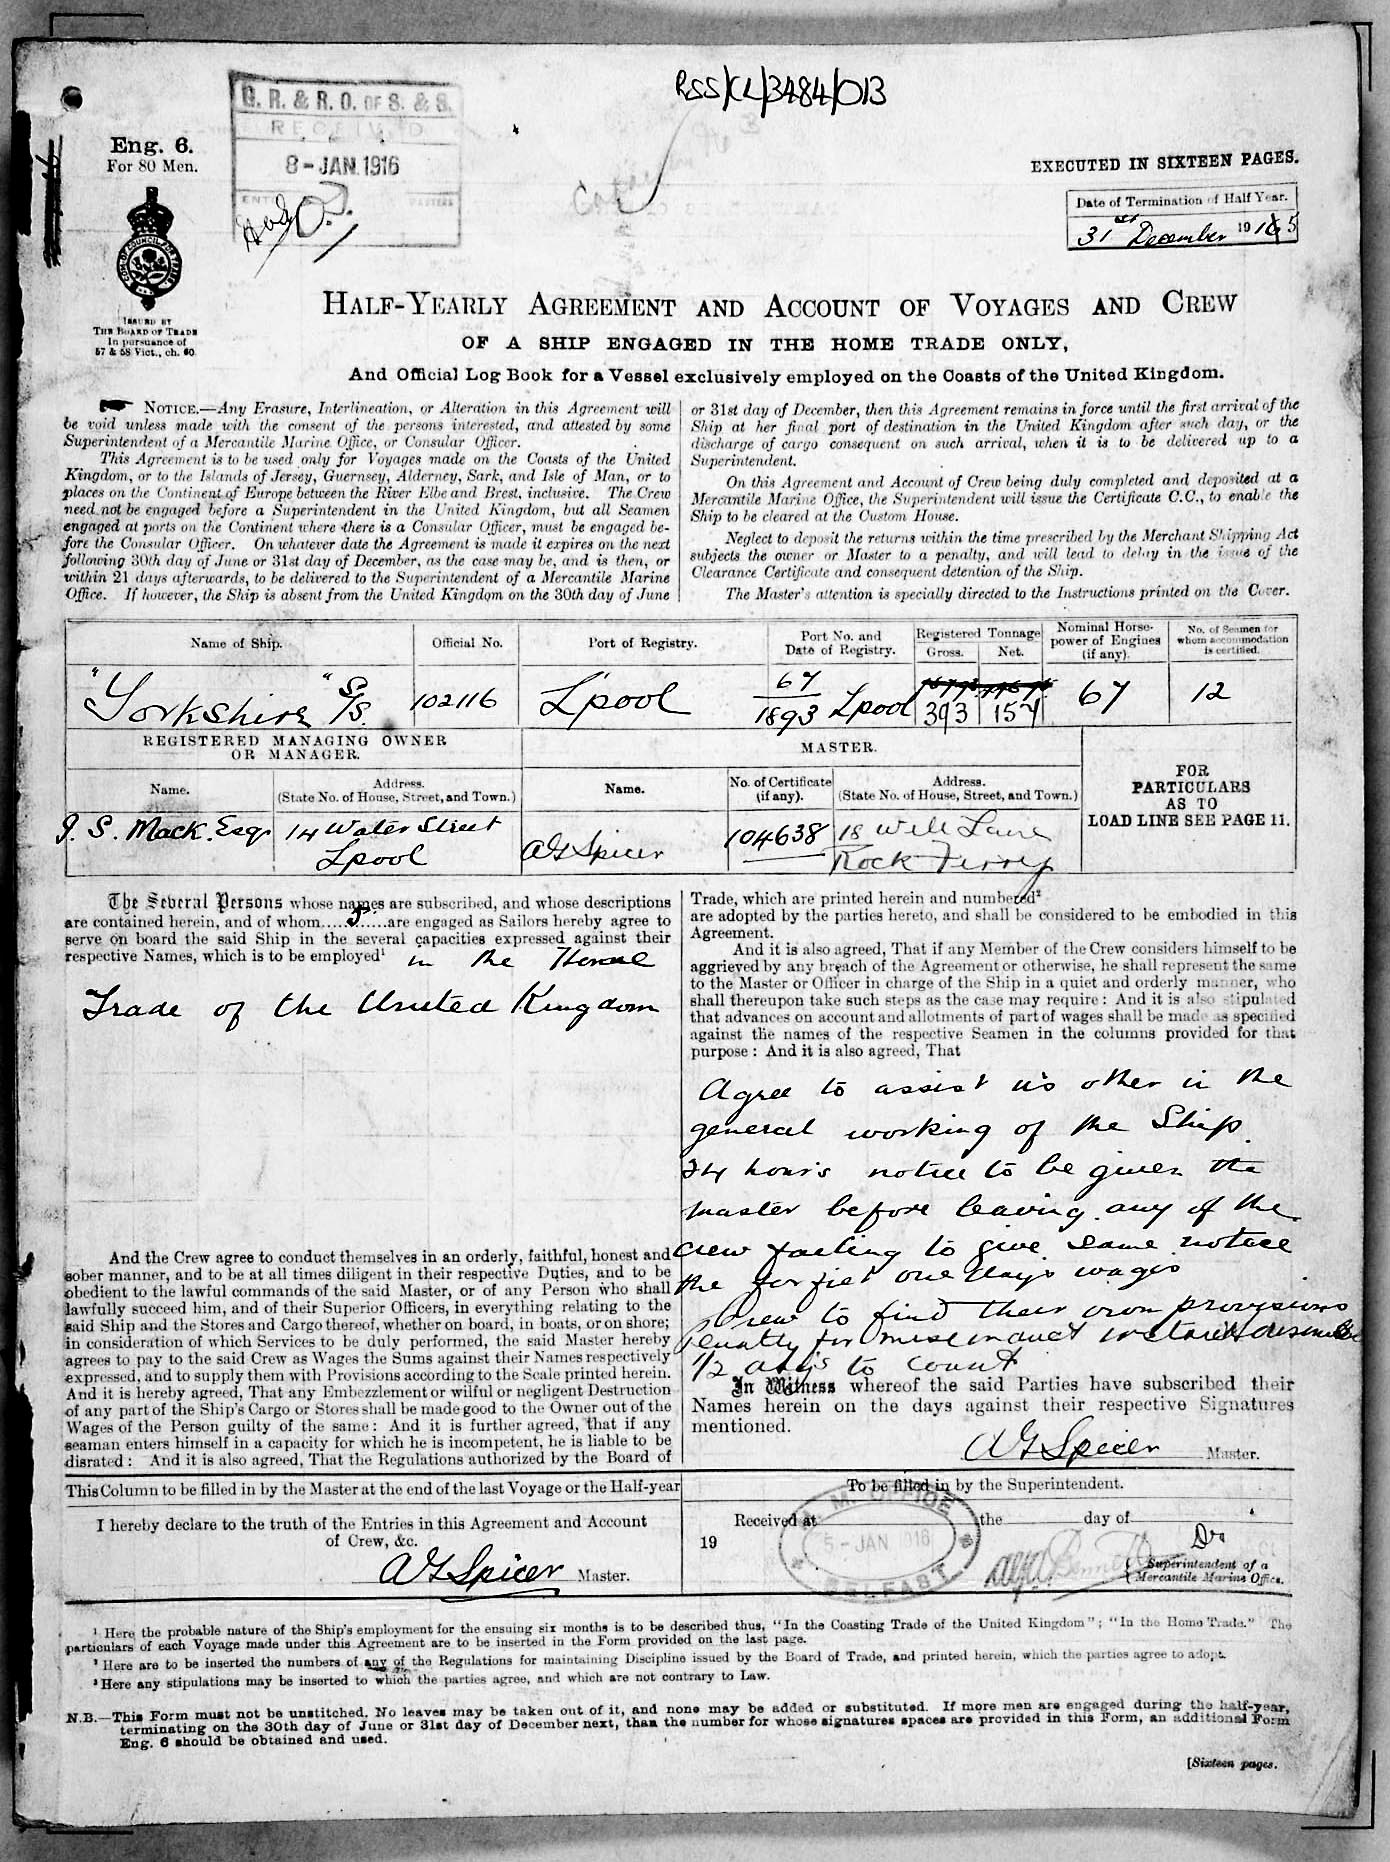 RSS/CL/3484/013
G. R. & R. O. OF S. & S.
RECEIVED
8-JAN.1916
Eng. 6.
For 80 Men.
EXECUTED IN SIXTEEN PAGES.
Date of Termination of Half Year.
31st December 1915
ISSUED BY
THE BOARD OF TRADE
In pursuance of
57 & 58 Vict., ch. 60.
HALF-YEARLY AGREEMENT AND ACCOUNT OF VOYAGES AND CREW
OF A SHIP ENGAGED IN THE HOME TRADE ONLY,
And Official Log Book for a Vessel exclusively employed on the Coasts of the United Kingdom.
NOTICE.—Any Erasure, Interlineation, or Alteration in this Agreement will
be void unless made with the consent of the persons interested, and attested by some
Superintendent of a Mercantile Marine Office, or Consular Officer.
This Agreement is to be used only for Voyages made on the Coasts of the United
Kingdom, or to the Islands of Jersey, Guernsey, Alderney, Sark, and Isle of Man, or to
places on the Continent of Europe between the River Elbe and Brest, inclusive. The Crew
need not be engaged before a Superintendent in the United Kingdom, but all Seamen
engaged at ports on the Continent where there is a Consular Officer, must be engaged be-
fore the Consular Officer. On whatever date the Agreement is made it expires on the next
following 30th day of June or 31st day of December, as the case may be, and is then, or
within 21 days afterwards, to be delivered to the Superintendent of a Mercantile Marine
Office. If however, the Ship is absent from the United Kingdom on the 30th day of June
or 31st day of December, then this Agreement remains in force until the first arrival of the
Ship at her final port of destination in the United Kingdom after such day, or the
discharge of cargo consequent on such arrival, when it is to be delivered up to a
Superintendent.
On this Agreement and Account of Crew being duly completed and deposited at a
Mercantile Marine Office, the Superintendent will issue the Certificate C.C., to enable the
Ship to be cleared at the Custom House.
Neglect to deposit the returns within the time prescribed by the Merchant Shipping Act
subjects the owner or Master to a penalty, and will lead to delay in the issue of the
Clearance Certificate and consequent detention of the Ship.
The Master's attention is specially directed to the Instructions printed on the Cover.
Name of Ship. Official No. Port of Registry. Port No. and Date of Registry. Registered Tonnage Gross. Net. Nominal Horse-power of Engines (if any). No. of Seamen for whom accommodation is certified.
"Yorkshire" S/S. 102116 L'pool 67/1893 Lpool 393 154 67 12
REGISTERED MANAGING OWNER
OR MANAGER.
MASTER.
Name. Address. (State No. of House, Street, and Town.) Name. No. of Certificate (if any). Address. (State No. of House, Street, and Town.)
FOR
PARTICULARS
AS TO
LOAD LINE SEE PAGE 11.
J. S. Mack. Esqr 14 Water Street
Lpool
AG Spicer 104638 18 Well Lane
Rock Ferry
The Several Persons whose names are subscribed, and whose descriptions
are contained herein, and of whom.....5......are engaged as Sailors hereby agree to
serve on board the said Ship in the several capacities expressed against their
respective Names, which is to be employed¹ in the Home
Trade of the United Kingdom
And the Crew agree to conduct themselves in an orderly, faithful, honest and
sober manner, and to be at all times diligent in their respective Duties, and to be
obedient to the lawful commands of the said Master, or of any Person who shall
lawfully succeed him, and of their Superior Officers, in everything relating to the
said Ship and the Stores and Cargo thereof, whether on board, in boats, or on shore;
in consideration of which Services to be duly performed, the said Master hereby
agrees to pay to the said Crew as Wages the Sums against their Names respectively
expressed, and to supply them with Provisions according to the Scale printed herein.
And it is hereby agreed, That any Embezzlement or wilful or negligent Destruction
of any part of the Ship's Cargo or Stores shall be made good to the Owner out of the
Wages of the Person guilty of the same: And it is further agreed, that if any
seaman enters himself in a capacity for which he is incompetent, he is liable to be
disrated: And it is also agreed, That the Regulations authorized by the Board of
Trade, which are printed herein and numbered²
are adopted by the parties hereto, and shall be considered to be embodied in this
Agreement.
And it is also agreed, That if any Member of the Crew considers himself to be
aggrieved by any breach of the Agreement or otherwise, he shall represent the same
to the Master or Officer in charge of the Ship in a quiet and orderly manner, who
shall thereupon take such steps as the case may require: And it is also stipulated
that advances on account and allotments of part of wages shall be made as specified
against the names of the respective Seamen in the columns provided for that
purpose: And it is also agreed, That
Agree to assist other in the
general working of the Ship.
24 hours notice to be given the
master before leaving. any of the
crew failing to give same notice
the forfiet one days wages
Crew to find their own provisions
Penalty for misconduct
1/2 days to count
In Witness whereof the said Parties have subscribed their
Names herein on the days against their respective Signatures
mentioned.
AG Spicer Master.
This Column to be filled in by the Master at the end of the last Voyage or the Half-year
I hereby declare to the truth of the Entries in this Agreement and Account
of Crew, &c.
AG Spicer Master.
To be filled in by the Superintendent.
Received at the day of
19
M. M. OFFICE
5-JAN 1916
BELFAST
Superintendent of a
Mercantile Marine Office.
¹ Here the probable nature of the Ship's employment for the ensuing six months is to be described thus, "In the Coasting Trade of the United Kingdom"; "In the Home Trade." The
particulars of each Voyage made under this Agreement are to be inserted in the Form provided on the last page.
² Here are to be inserted the numbers of any of the Regulations for maintaining Discipline issued by the Board of Trade, and printed herein, which the parties agree to adopt.
³ Here any stipulations may be inserted to which the parties agree, and which are not contrary to Law.
N.B.—This Form must not be unstitched. No leaves may be taken out of it, and none may be added or substituted. If more men are engaged during the half-year,
terminating on the 30th day of June or 31st day of December next, than the number for whose signatures spaces are provided in this Form, an additional Form
Eng. 6 should be obtained and used.
[Sixteen pages.